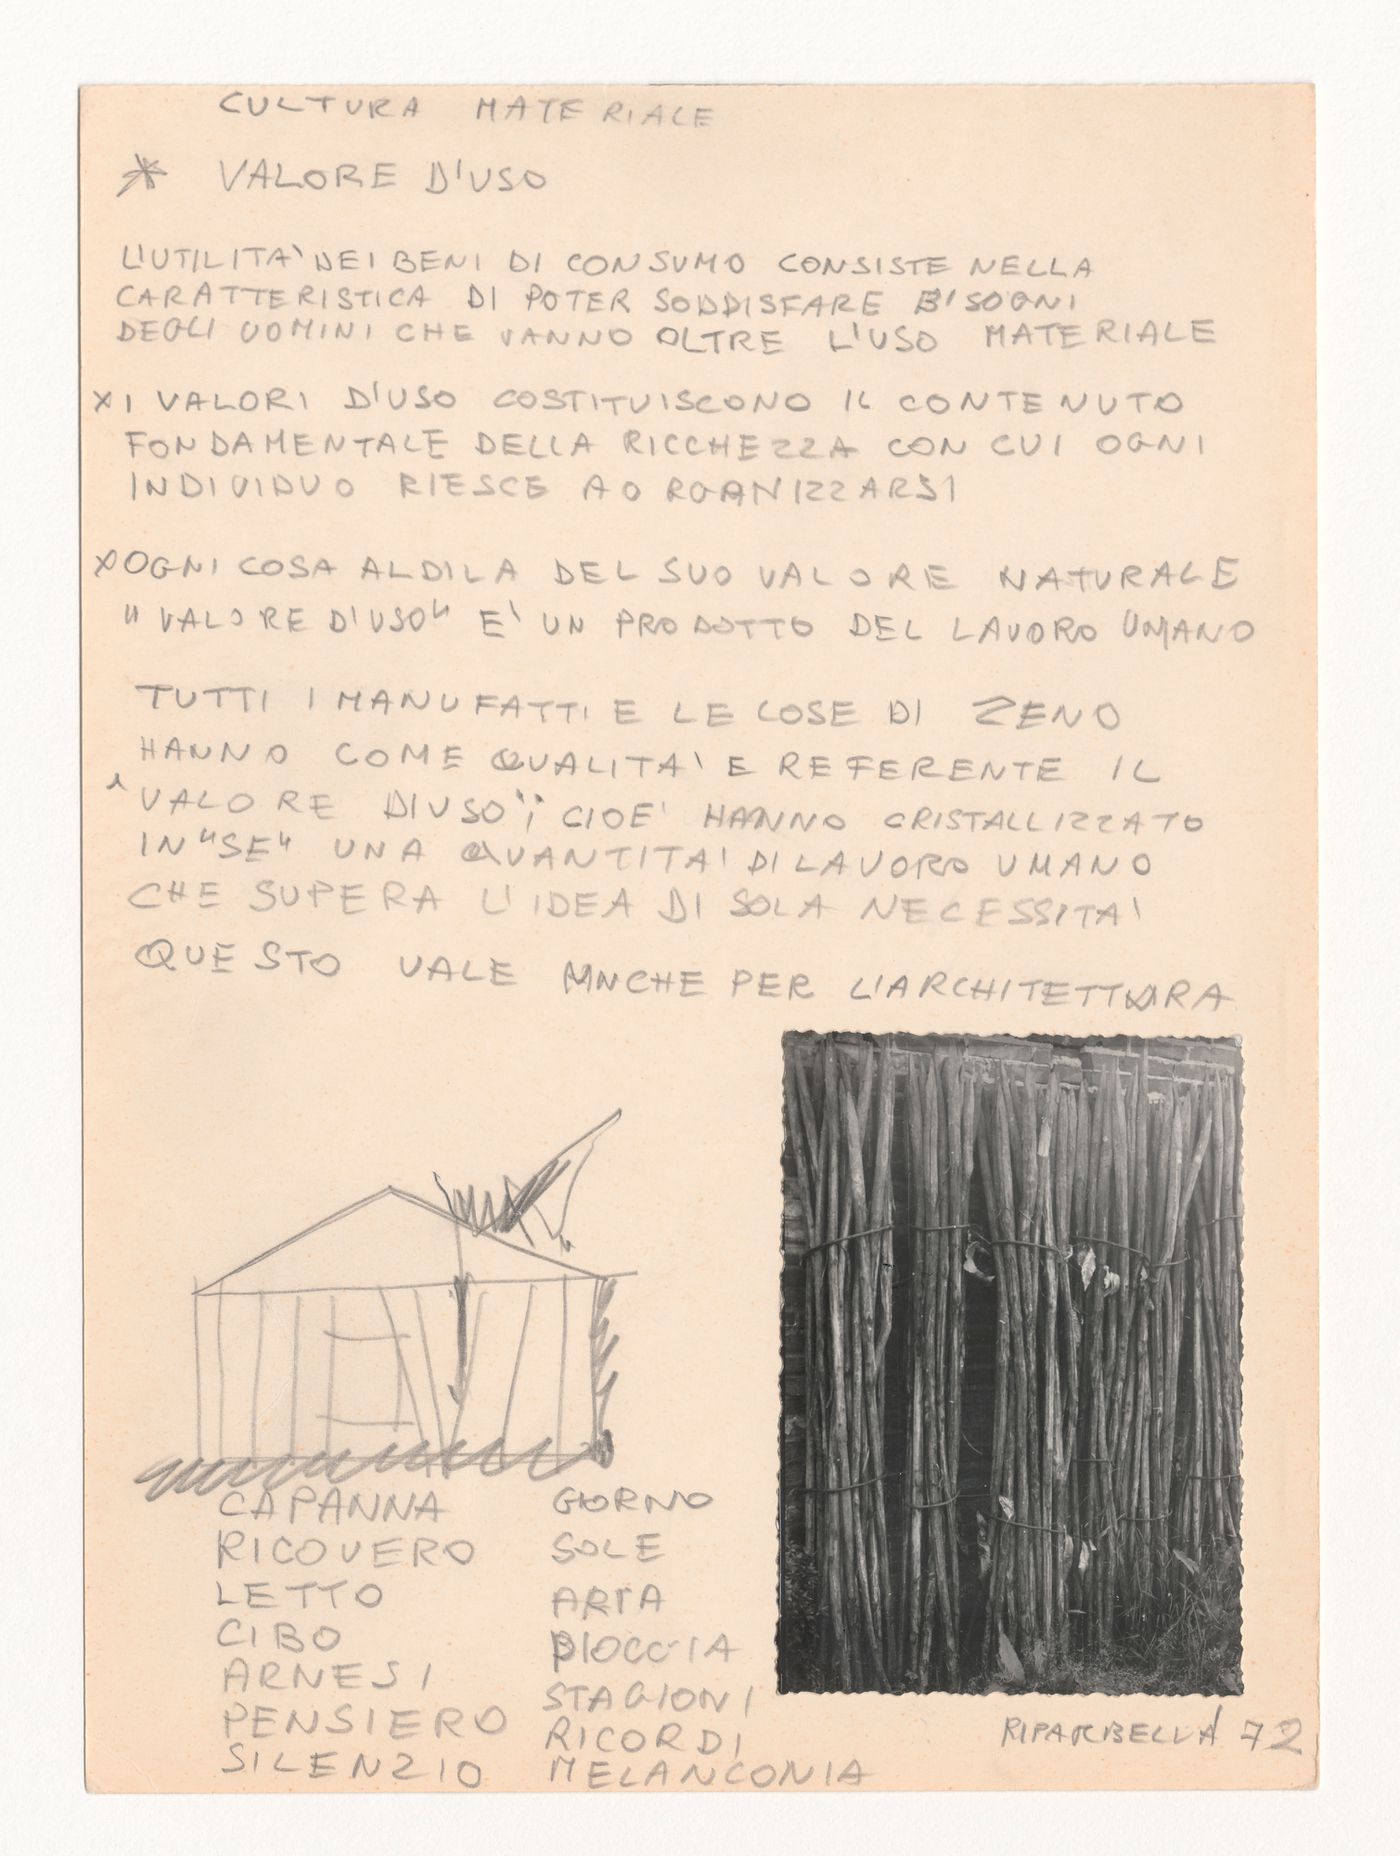 CULTURA MATERIALE
* VALORE D'USO
L'UTILITA' DEI BENI DI CONSUMO CONSISTE NELLA
CARATTERISTICA DI POTER SODDISFARE BISOGNI
DEGLI UOMINI CHE VANNO OLTRE L'USO MATERIALE
X I VALORI D'USO COSTITUISCONO IL CONTENUTO
FONDAMENTALE DELLA RICCHEZZA CON CUI OGNI
INDIVIDUO RIESCE AO RGANIZZARSI
X OGNI COSA ALDILA DEL SUO VALORE NATURALE
"VALORE D'USO" E' UN PRODOTTO DEL LAVORO UMANO
TUTTI I MANUFATTI E LE COSE DI ZENO
HANNO COME QUALITA' E REFERENTE IL
"VALORE DIUSO"; CIOE' HANNO CRISTALLIZZATO
IN "SE" UNA QUANTITA' DI LAVORO UMANO
CHE SUPERA L'IDEA DI SOLA NECESSITA'
QUESTO VALE ANCHE PER L'ARCHITETTURA
CAPANNA
RICOVERO
LETTO
CIBO
ARNESI
PENSIERO
SILENZIO
GIORNO
SOLE
ARIA
PIOGGIA
STAGIONI
RICORDI
MELANCONIA
RIPARBELLA 72